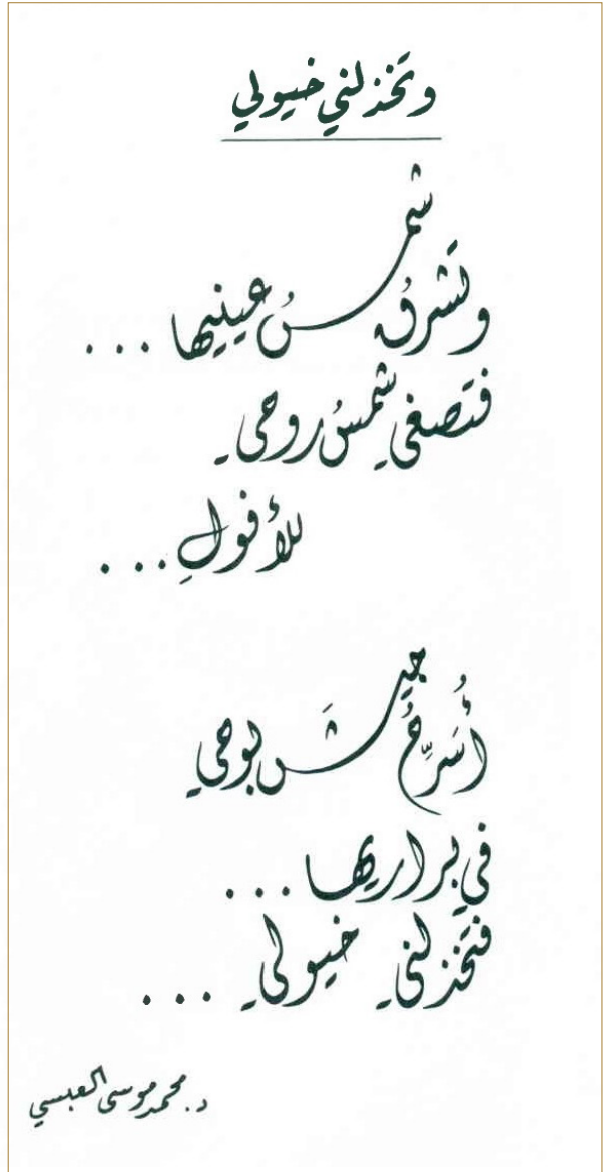 وتخذلني خيولي
وتَشرقُ شمسُ عينيها ...
فتَصغي شمسُ روحي
للأفولِ ...
أُسَرِّحُ جيشَ بوحي
في براريها ...
فتَخذلني خيولي ...
د. محمد موسى العبسي